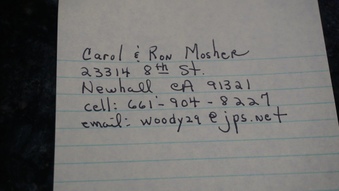 Carol & Ron Mosher
23314 8th St.
Newhall CA 91321
cell: 661-904-8227
email: woody29@jps.net